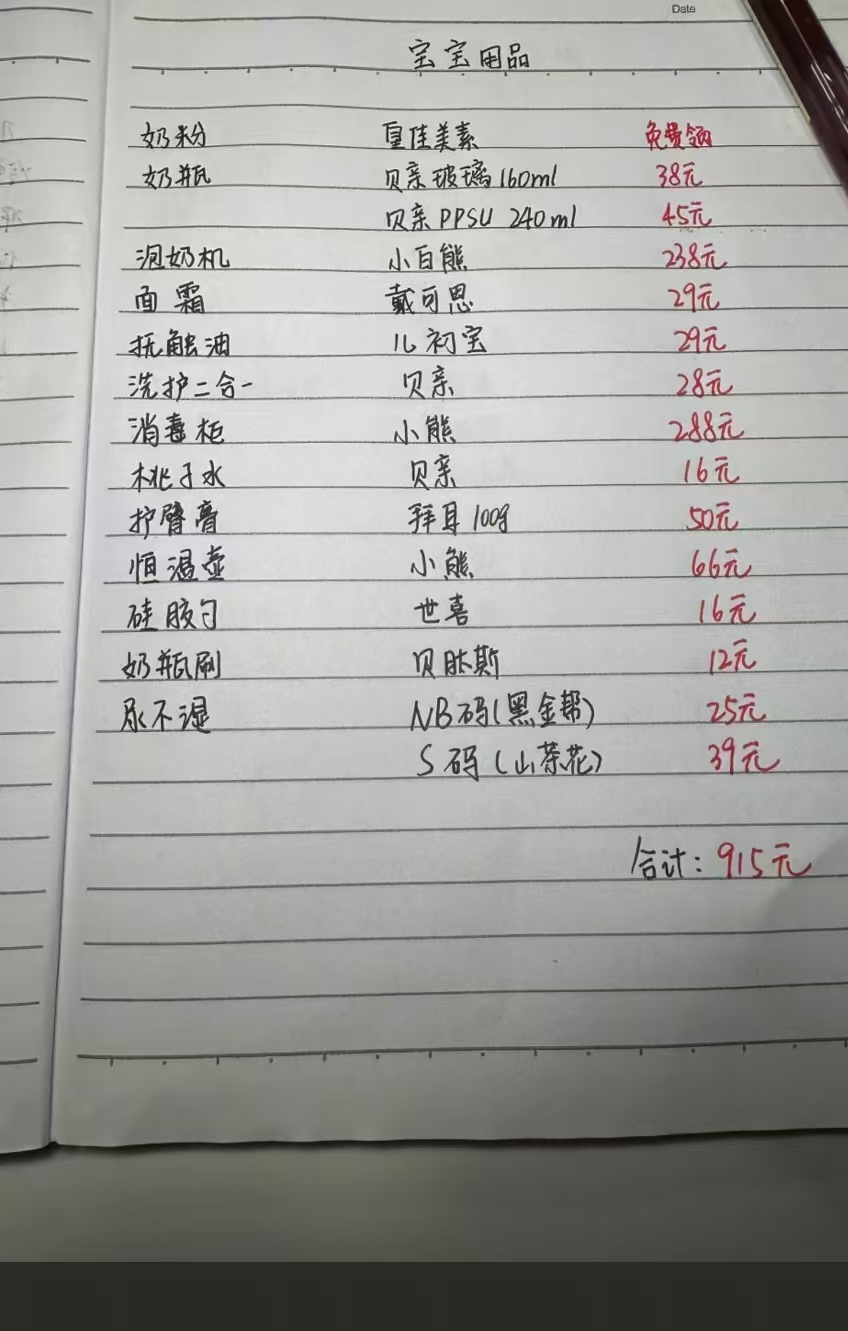 Date
宝宝用品
奶粉 皇佳美素 免费领
奶瓶 贝亲玻璃160ml 38元
贝亲PPSU 240ml 45元
泡奶机 小白熊 238元
面霜 戴可思 29元
抚触油 儿初宝 29元
洗护二合一 贝亲 28元
消毒柜 小熊 288元
桃子水 贝亲 16元
护臀膏 拜耳100g 50元
恒温壶 小熊 66元
硅胶勺 世喜 16元
奶瓶刷 贝肽斯 12元
尿不湿 NB码(黑金帮) 25元
S码(山茶花) 39元
合计:915元